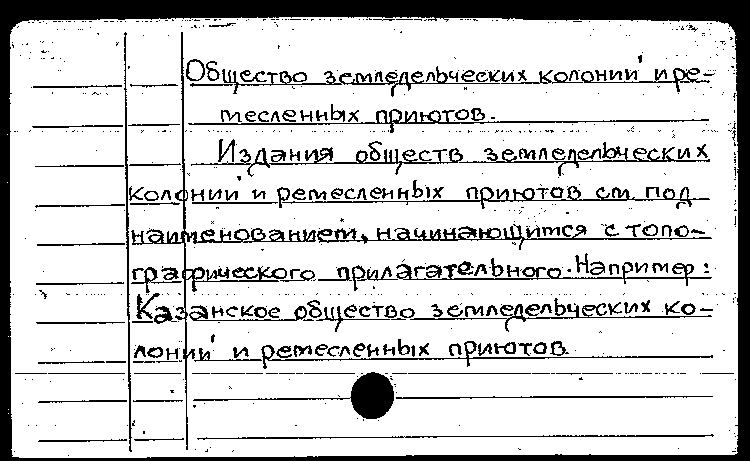 Общество земледельческих колоний и ре-
месленных приютов.
Издания обществ земледельческих
колоний и ремесленных приютов см. под
наименованием, начинающимся с топо-
графического прилагательного. Например:
Казанское общество земледельческих ко-
лоний и ремесленных приютов.